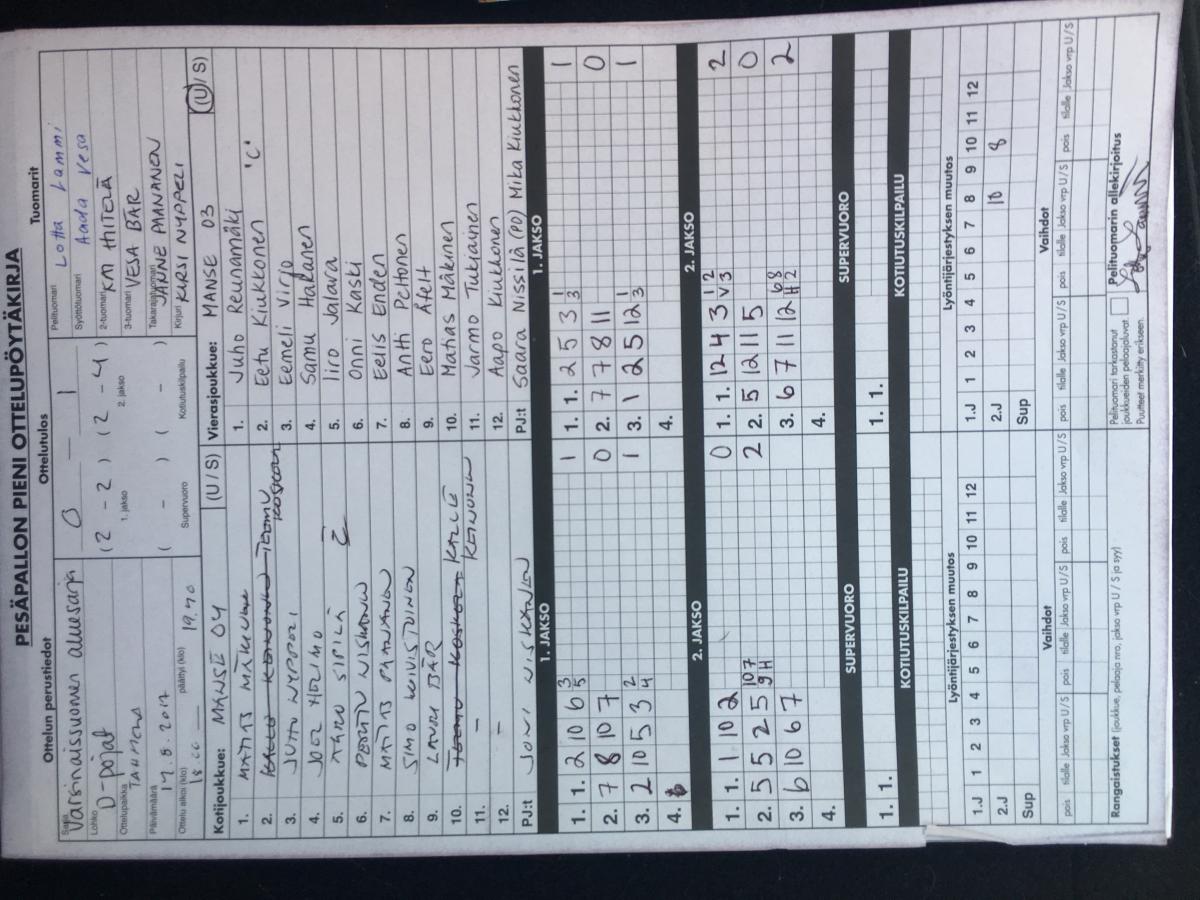 PESÄPALLON PIENI OTTELUPÖYTÄKIRJA
Ottelun perustiedot
Sarja Varsinaissuomen aluesarja
Lohko D-pojat
Ottelupaikka
Päivämäärä 17.8.2017
Ottelu alkoi (klo) päättyi (klo) 19.40
Ottelutulos
0 – 1
(2 – 2) (2 – 4)
1. jakso 2. jakso
( – ) ( – )
Supervuoro Kotiutuskilpailu
Tuomarit
Pelituomari Lotta Lammi
Syöttötuomari Aada Vesa
2-tuomari
3-tuomari VESA BÄR
Takarajatuomari JANNE PAANANEN
Kirjuri KIRSI NYPPELI
Kotijoukkue: MANSE 04 (U / S)
1. MATIAS
2.
3.
4.
5. SIPILÄ
6.
7. MATIAS PAANANEN
8. SIMO KIVISTÖINEN
9. LAURI BÄR
10. KALLE
11. –
12. –
PJ:t JONI NISKANEN
Vierasjoukkue: MANSE 03 (U / S)
1. Juho Reunamäki
2. Eetu Kiukkonen "C"
3. Eemeli Virjo
4. Samu Hakanen
5. Iiro Jalava
6. Onni Kaski
7. Eelis Enden
8. Antti Peltonen
9. Eero Äfelt
10. Matias Mäkinen
11. Jarmo Tukiainen
12. Aapo Kiukkonen
PJ:t Saara Nissilä (PD) Mika Kiukkonen
1. JAKSO
1. 1. 2 10 6 3 5 1
2. 7 8 10 7 0
3. 2 10 5 3 2 4 1
4.
1. JAKSO
1. 1. 2 5 3 1 3 1
2. 7 7 8 11 0
3. 1 2 5 12 1 3 1
4.
2. JAKSO
1. 1. 1 10 2 0
2. 5 5 2 5 10 7 9 H 2
3. 6 10 6 7
4.
2. JAKSO
1. 1. 12 4 3 1 2 V 3 2
2. 5 12 11 5 0
3. 6 7 11 12 6 8 H 2 2
4.
SUPERVUORO
1. 1.
SUPERVUORO
1. 1.
KOTIUTUSKILPAILU
KOTIUTUSKILPAILU
Lyöntijärjestyksen muutos
1.J 1 2 3 4 5 6 7 8 9 10 11 12
2.J
Sup
Lyöntijärjestyksen muutos
1.J 1 2 3 4 5 6 7 8 9 10 11 12
2.J 10 8
Sup
Vaihdot
pois tilalle Jakso vrp U / S pois tilalle Jakso vrp U / S pois tilalle Jakso vrp U / S
Vaihdot
pois tilalle Jakso vrp U / S pois tilalle Jakso vrp U / S pois tilalle Jakso vrp U / S
Rangaistukset (joukkue, pelaaja nro, jakso vrp U / S ja syy)
Pelituomari tarkastanut
joukkueiden pelaajaluvat.
Puutteet merkitty erikseen.
Pelituomarin allekirjoitus